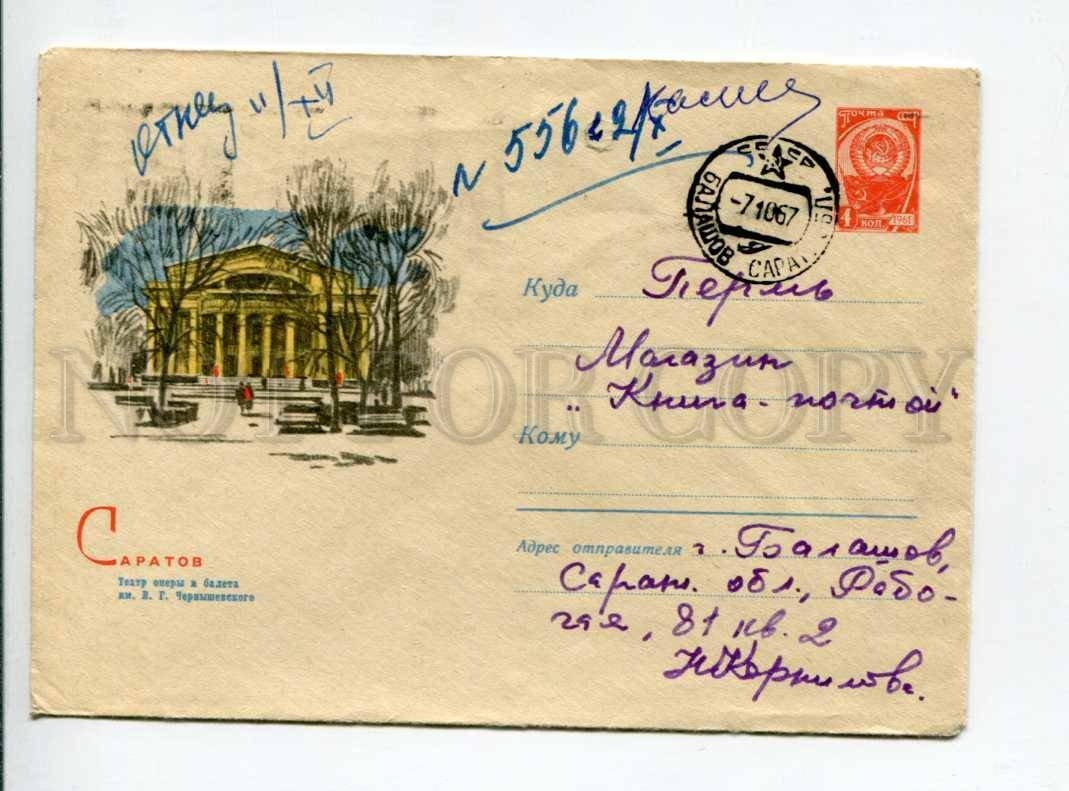 N 556 е 2/X
Почта СССР
4 коп. 1961
БАЛАШОВ САРАТ
-7.10.67
Куда Пермь
Магазин
„Книга-почтой"
Кому
Адрес отправителя г. Балашов,
Сарат. обл., Рабо-
чая, 81 кв. 2
Н Корнилова.
САРАТОВ
Театр оперы и балета
им. Н. Г. Чернышевского
NOT FOR COPY